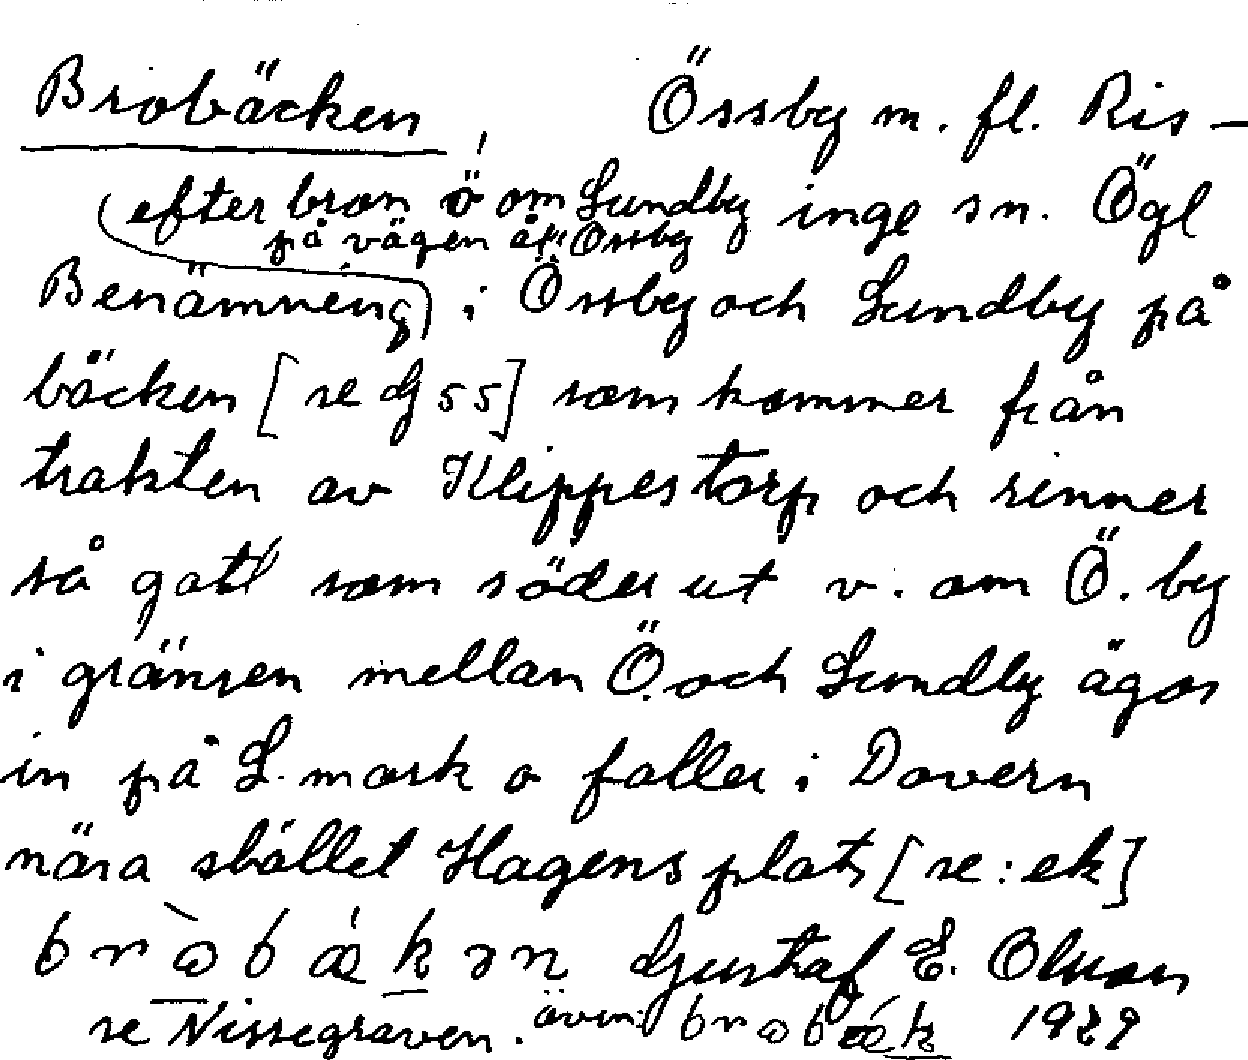 Brobäcken, Össby m. fl. Ris-
(efter bron ö om Lundby inge sn. Ögl
på vägen åt Össby
Benämning) i Össby och Lundby på
bäcken [se dj 55] som kommer från
trakten av Klippestorp och rinner
så gott som söder ut v. om Ö. by
i gränsen mellan Ö. och Lundby ägor
in på L. mark o faller i Dovern
nära stället Hagens plats [se: ek]
Gustaf E. Olsson
se Nissegraven. även 1929